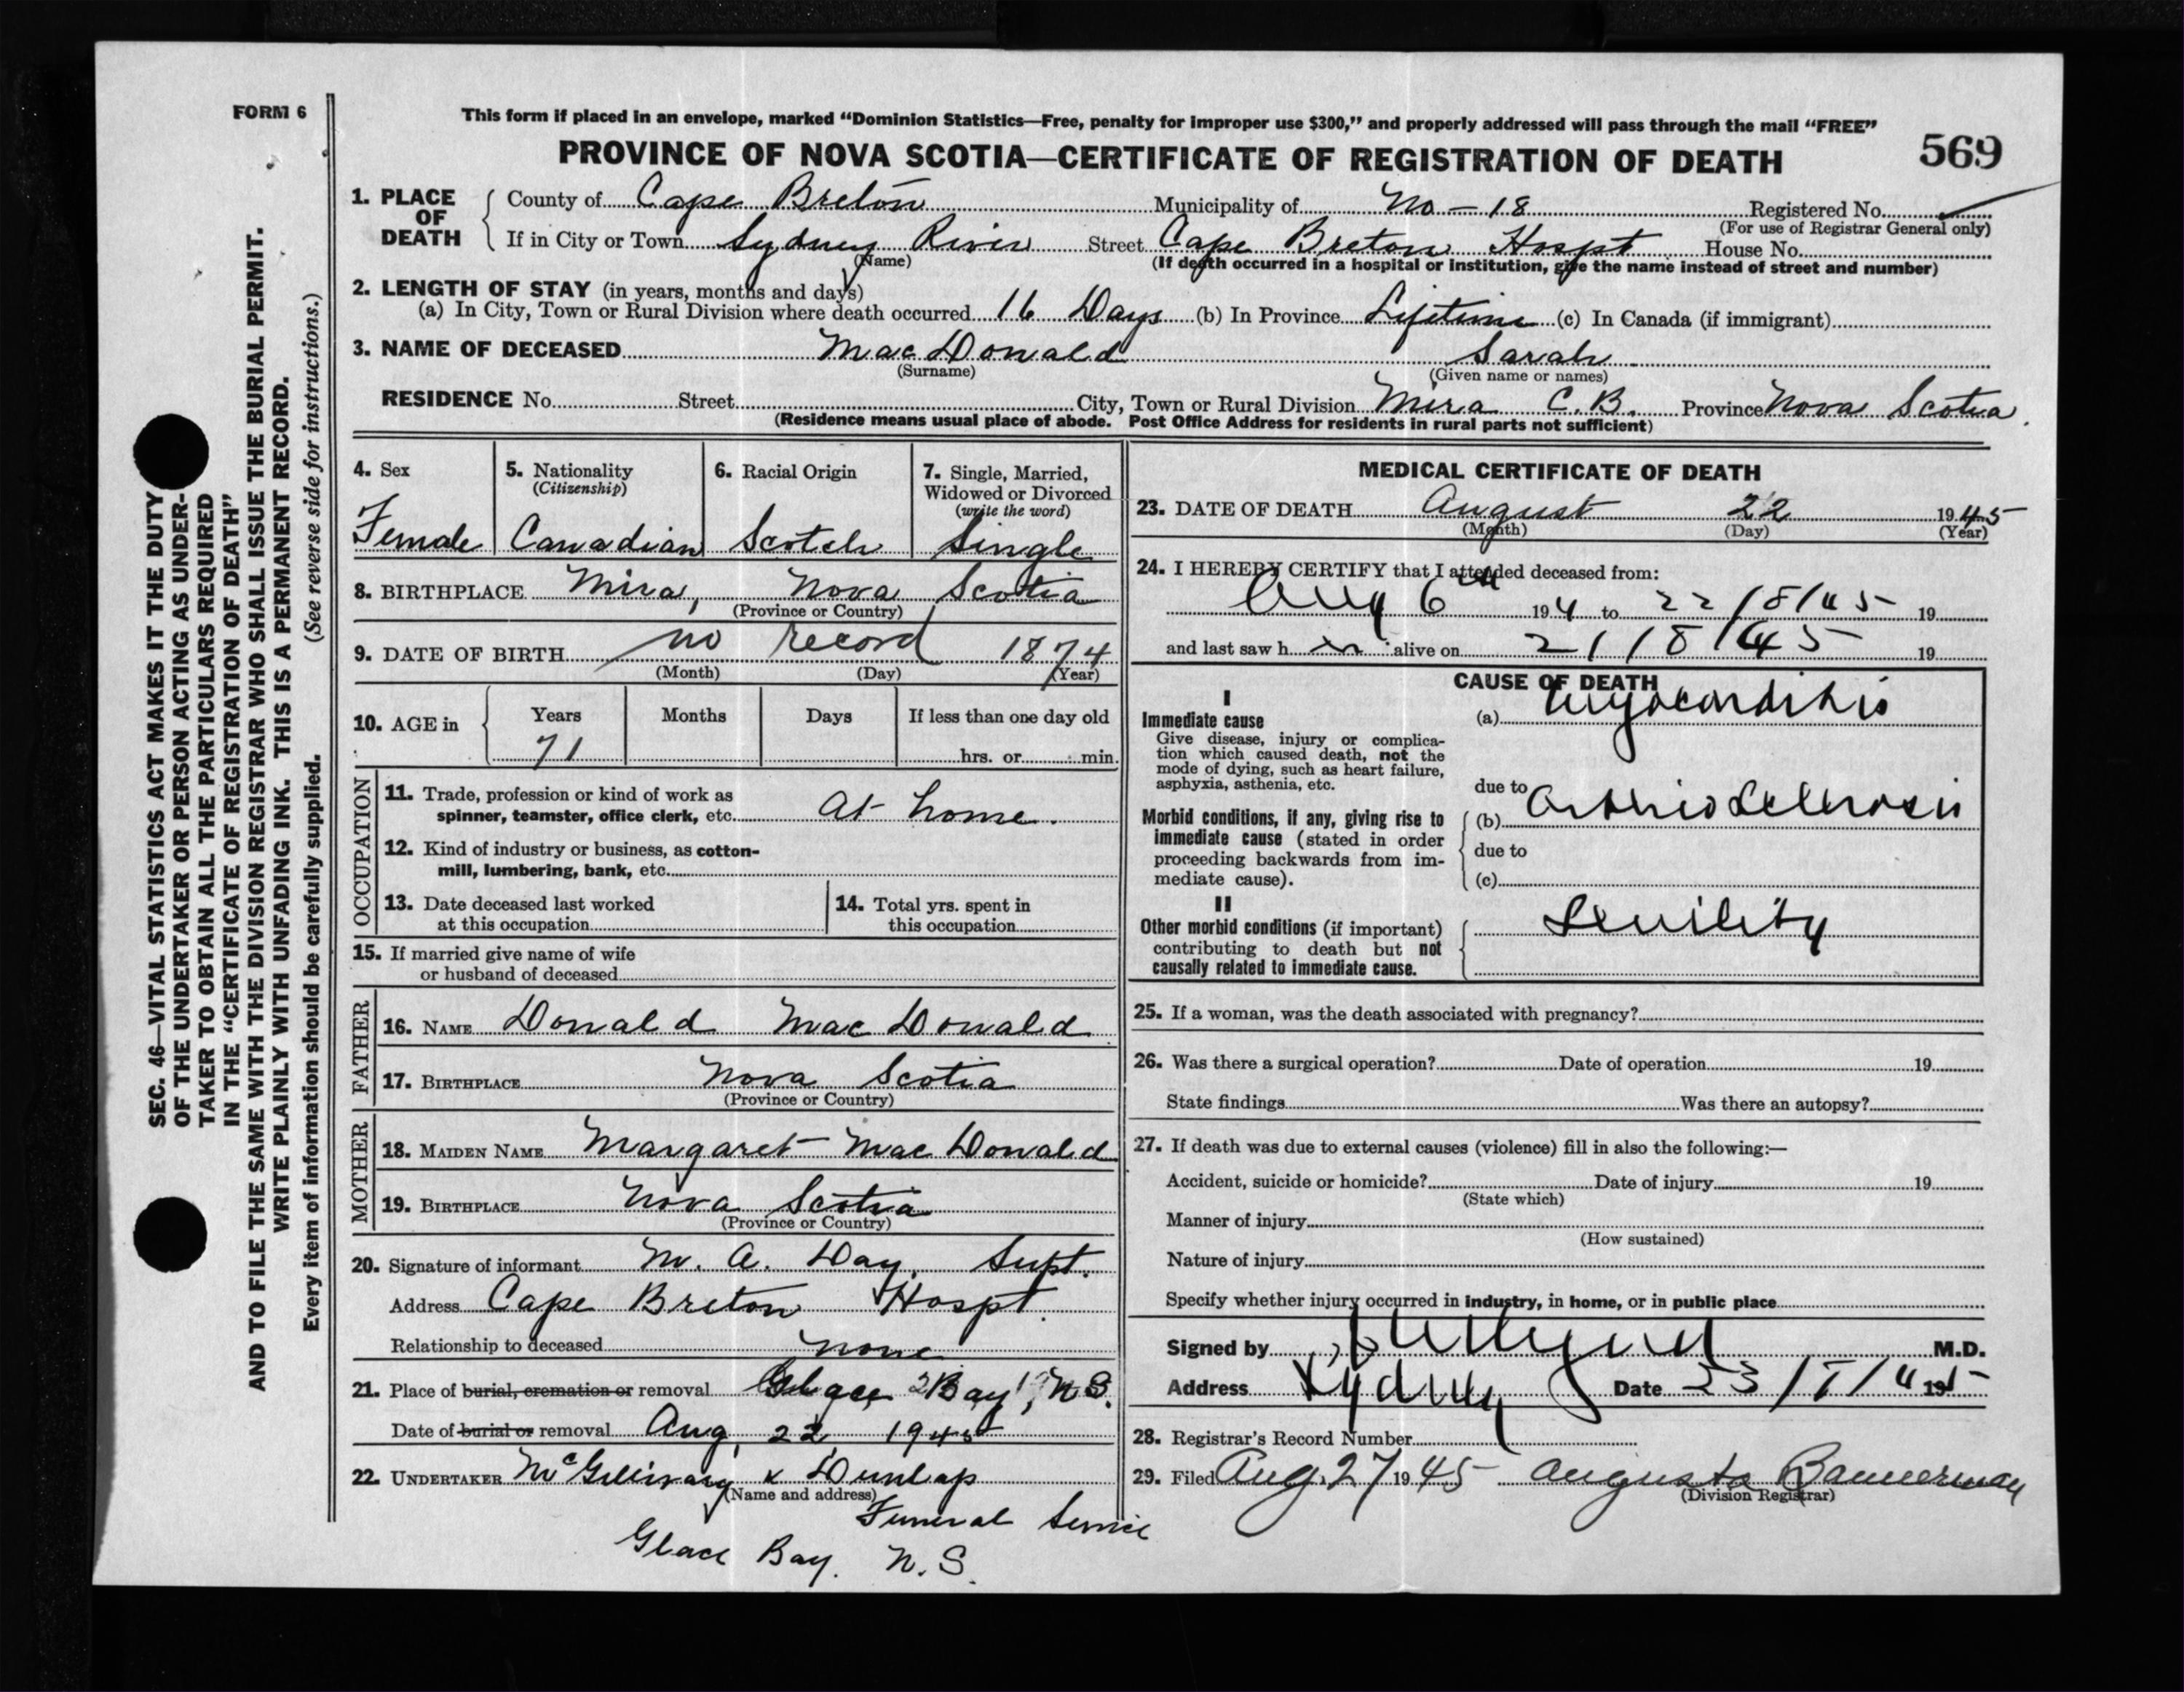 FORM 6
This form if placed in an envelope, marked “Dominion Statistics—Free, penalty for improper use $300,” and properly addressed will pass through the mail “FREE”
PROVINCE OF NOVA SCOTIA—CERTIFICATE OF REGISTRATION OF DEATH
569
1. PLACE OF DEATH
County of Cape Breton Municipality of No – 18 Registered No.
(For use of Registrar General only)
If in City or Town Sydney River Street Cape Breton Hospt House No.
(Name) (If death occurred in a hospital or institution, give the name instead of street and number)
2. LENGTH OF STAY (in years, months and days)
(a) In City, Town or Rural Division where death occurred 16 Days (b) In Province Lifetime (c) In Canada (if immigrant)
3. NAME OF DECEASED MacDonald Sarah
(Surname) (Given name or names)
RESIDENCE No. Street City, Town or Rural Division Mira C.B. Province Nova Scotia
(Residence means usual place of abode. Post Office Address for residents in rural parts not sufficient)
4. Sex
Female
5. Nationality
(Citizenship)
Canadian
6. Racial Origin
Scotch
7. Single, Married,
Widowed or Divorced
(write the word)
Single
8. BIRTHPLACE Mira, Nova Scotia
(Province or Country)
9. DATE OF BIRTH no record 1874
(Month) (Day) (Year)
10. AGE in
Years Months Days If less than one day old
71 hrs. or min.
OCCUPATION
11. Trade, profession or kind of work as
spinner, teamster, office clerk, etc. At home.
12. Kind of industry or business, as cotton-
mill, lumbering, bank, etc.
13. Date deceased last worked
at this occupation
14. Total yrs. spent in
this occupation
15. If married give name of wife
or husband of deceased
FATHER
16. NAME Donald MacDonald
17. BIRTHPLACE Nova Scotia
(Province or Country)
MOTHER
18. MAIDEN NAME Margaret MacDonald
19. BIRTHPLACE Nova Scotia
(Province or Country)
20. Signature of informant M. A. Day, Supt.
Address Cape Breton Hospt.
Relationship to deceased none
21. Place of burial, cremation or removal Glace Bay, N.S.
Date of burial or removal Aug. 22, 1945
22. UNDERTAKER McGillivary & Dunlap
(Name and address)
Funeral Service
Glace Bay. N.S.
MEDICAL CERTIFICATE OF DEATH
23. DATE OF DEATH August 22 1945
(Month) (Day) (Year)
24. I HEREBY CERTIFY that I attended deceased from:
Aug 6th 194 to 22/8/45 19
and last saw h er alive on 21/8/45 19
CAUSE OF DEATH
I
Immediate cause
Give disease, injury or complica-
tion which caused death, not the
mode of dying, such as heart failure,
asphyxia, asthenia, etc.
(a) Myocarditis
due to
Morbid conditions, if any, giving rise to
immediate cause (stated in order
proceeding backwards from im-
mediate cause).
(b) Arteriosclerosis
due to
(c)
II
Other morbid conditions (if important)
contributing to death but not
causally related to immediate cause.
Senility
25. If a woman, was the death associated with pregnancy?
26. Was there a surgical operation? Date of operation 19
State findings Was there an autopsy?
27. If death was due to external causes (violence) fill in also the following:—
Accident, suicide or homicide? Date of injury 19
(State which)
Manner of injury
(How sustained)
Nature of injury
Specify whether injury occurred in industry, in home, or in public place
Signed by M.D.
Address Sydney Date 23/8/45 19
28. Registrar's Record Number
29. Filed Aug. 27 1945 Augusta Bannerman
(Division Registrar)
SEC. 46—VITAL STATISTICS ACT MAKES IT THE DUTY
OF THE UNDERTAKER OR PERSON ACTING AS UNDER-
TAKER TO OBTAIN ALL THE PARTICULARS REQUIRED
IN THE “CERTIFICATE OF REGISTRATION OF DEATH”
AND TO FILE THE SAME WITH THE DIVISION REGISTRAR WHO SHALL ISSUE THE BURIAL PERMIT.
WRITE PLAINLY WITH UNFADING INK. THIS IS A PERMANENT RECORD.
Every item of information should be carefully supplied. (See reverse side for instructions.)